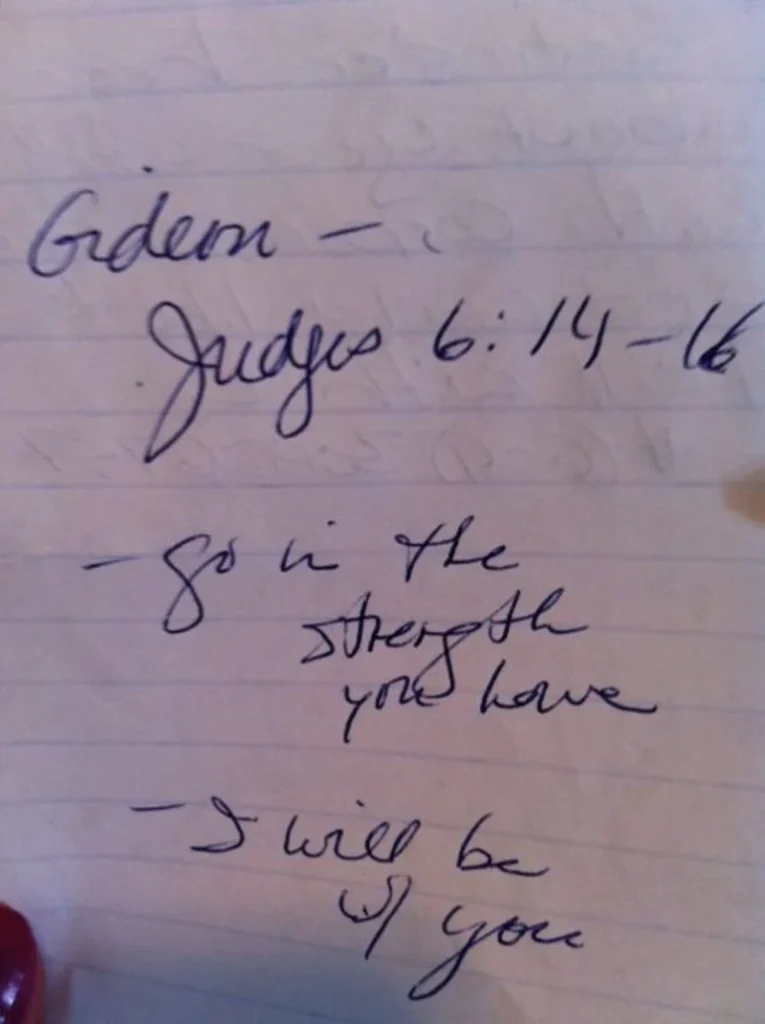 Gideon -
Judges 6:14-16
- go in the
strength
you have
- I will be
w/ you